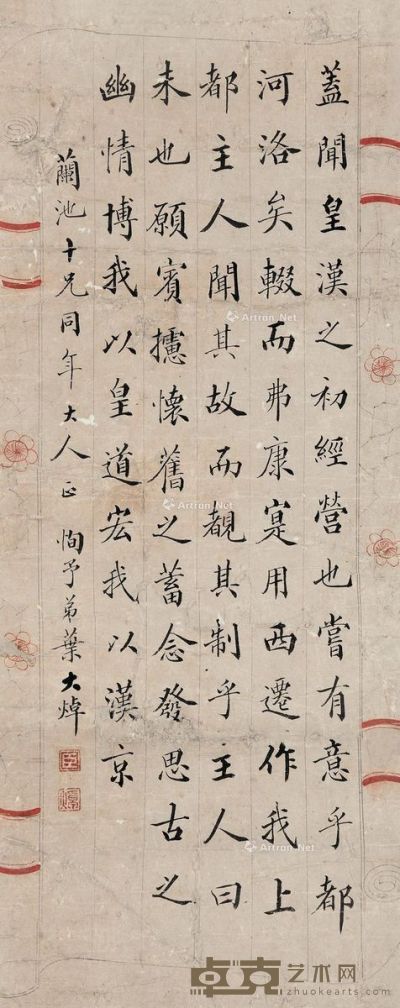 蓋聞皇漢之初經營也嘗有意乎都
河洛矣輟而弗康寔用西遷作我上
都主人聞其故而覩其制乎主人曰
未也願賓攄懷舊之蓄念發思古之
幽情博我以皇道宏我以漢京
蘭池十兄同年大人正 恂予弟葉大焯
Artron.Net
Artron.Net
Artron.Net
Artron.Net
卓克艺术网
zhuokearts.com